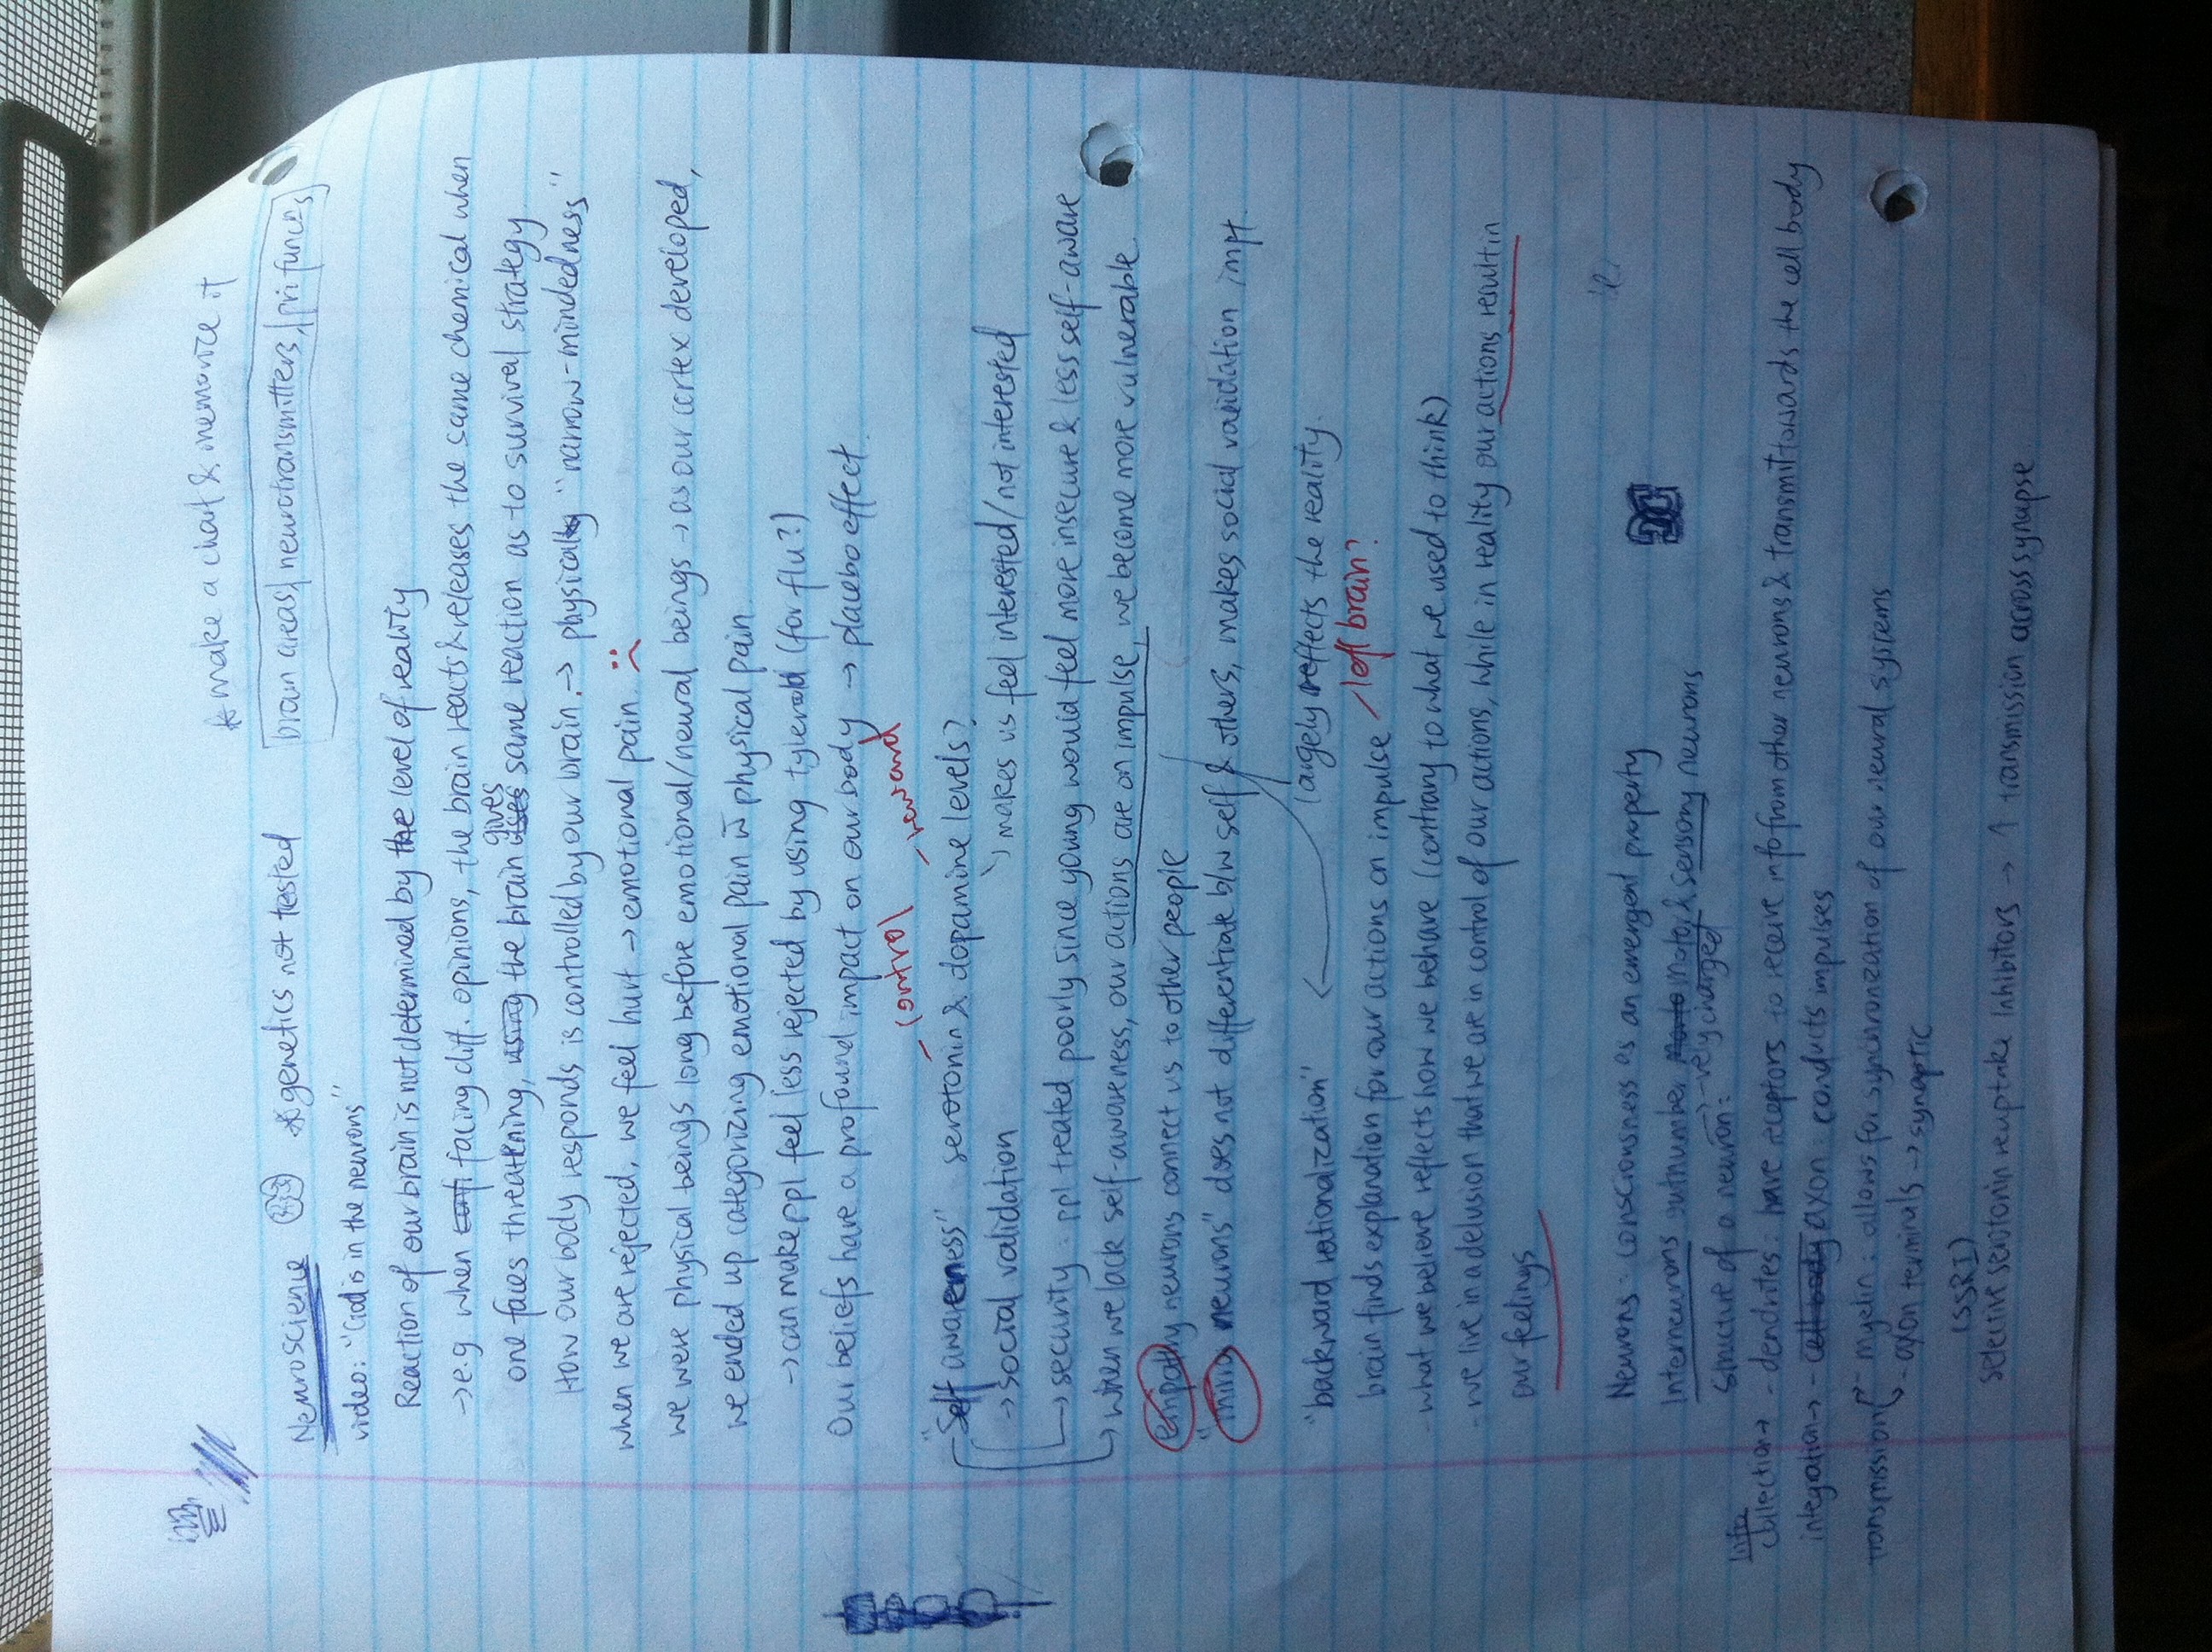 * make a chart & memorize it
Neuroscience * genetics not tested brain areas, neurotransmitters, pri funcs
video: "God is in the neurons"
Reaction of our brain is not determined by the level of reality
→ e.g. when facing diff. opinions, the brain reacts & releases the same chemical when
one faces threatening, the brain gives same reaction as to survival strategy
How our body responds is controlled by our brain. → physical "narrow-mindedness"
when we are rejected, we feel hurt → emotional pain :(
we were physical beings long before emotional/neural beings → as our cortex developed,
we ended up categorizing emotional pain w physical pain
→ can make ppl feel less rejected by using tylenol (for flu?)
Our beliefs have a profound impact on our body → placebo effect.
control reward
"Self awareness" serotonin & dopamine levels?
→ social validation ↘ makes us feel interested/not interested
→ security: ppl treated poorly since young would feel more insecure & less self-aware
↳ when we lack self-awareness, our actions are on impulse, we become more vulnerable.
empathy neurons connect us to other people
"mirror neurons" does not differentiate b/w self & others, makes social validation impt.
"backward rationalization" ← largely reflects the reality.
brain finds explanation for our actions on impulse left brain?
- what we believe reflects how we behave (contrary to what we used to think)
- we live in a delusion that we are in control of our actions, while in reality our actions result in
our feelings
Neurons: consciousness as an emergent property
Interneurons outnumber motor & sensory neurons
structure of a neuron: - vely charged
Info
collection → - dendrites: have receptors to receive info from other neurons & transmit towards the cell body
integration → - cell body axon: conducts impulses
transmission - myelin: allows for synchronization of our neural systems
- axon terminals → synaptic
(SSRI)
selective serotonin reuptake inhibitors → ↑ transmission across synapse